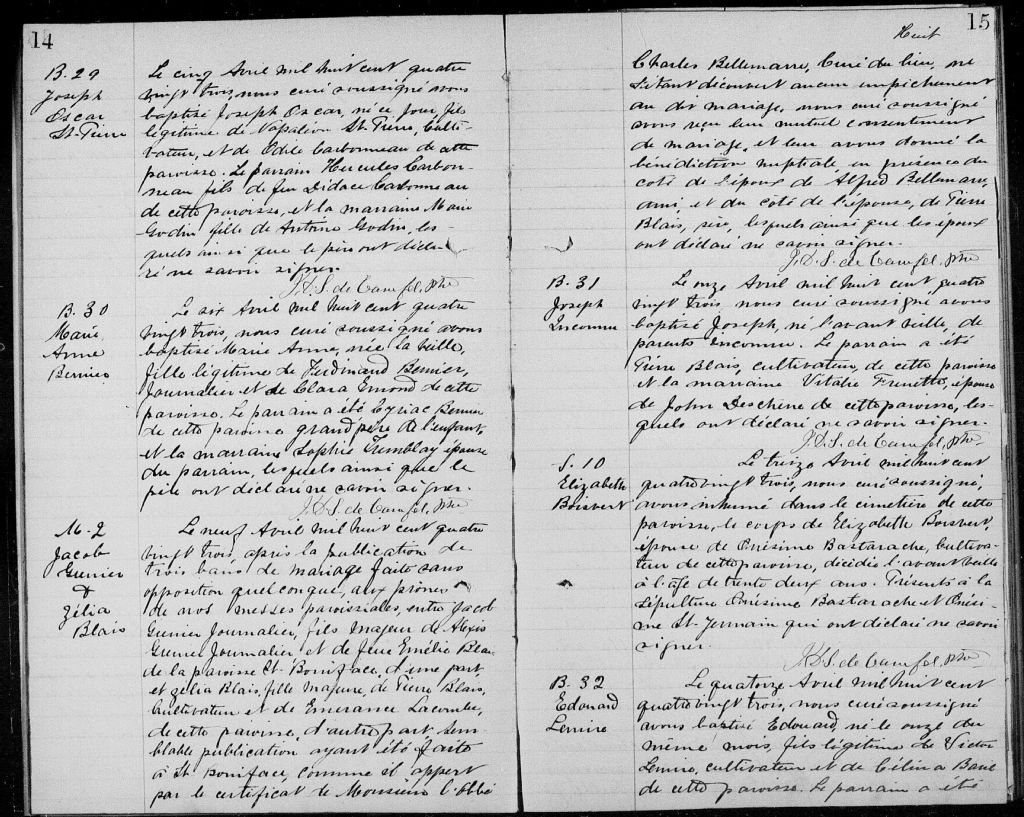 14
B. 29
Joseph
Oscar
St-Pierre
Le cinq Avril mil huit cent quatre
vingt trois, nous curé soussigné avons
baptisé Joseph Oscar, né ce jour, fils
légitime de Napoléon St-Pierre, Culti-
vateur, et de Odile Carbonneau de cette
paroisse. Le parrain Hercules Carbon-
neau fils de feu Didace Carbonneau
de cette paroisse, et la marraine Marie
Godin fille de Antoine Godin, les-
quels ainsi que le père ont décla-
ré ne savoir signer.
J.D.S. de Ptre
B. 30
Marie
Anne
Bernier
Le six Avril mil huit cent quatre
vingt trois, nous curé soussigné avons
baptisé Marie Anne, née la veille,
fille légitime de Ferdinand Bernier,
Journalier et de Clara Emond de cette
paroisse. Le parrain a été Cyriac Bernier
de cette paroisse grand père de l'enfant,
et la marraine Sophie Tremblay épouse
du parrain, lesquels ainsi que le
père ont déclaré ne savoir signer.
J.D.S. de Ptre
M- 2
Jacob
Grenier
&
Zélia
Blais
Le neuf Avril mil huit cent quatre
vingt trois, après la publication de
trois bans de mariage faite sans
opposition quelconque, aux prônes
de nos messes paroissiales, entre Jacob
Grenier Journalier, fils majeur de Alexis
Grenier Journalier et de feue Emélie
de la paroisse St. Boniface, d'une part,
et Zélia Blais, fille majeure, de Pierre Blais,
Cultivateur et de Emerance Lacombe,
de cette paroisse, d'autre part sem
blable publication ayant été faite
à St Boniface, comme il appert
par le certificat de Monsieur l'Abbé
Huit
15
Charles Bellemarre, Curé du lieu, ne
s'étant découvert aucun empêchement
au dit mariage, nous curé soussigné
avons reçu leur mutuel consentement
de mariage, et leur avons donné la
bénédiction nuptiale en présence du
coté de l'époux de Alfred Bellemarre,
ami et du coté de l'épouse, de Pierre
Blais, père, lesquels ainsi que les époux
ont déclaré ne savoir signer.
J.D.S. de Ptre
B. 31
Joseph
Inconnu
Le onze Avril mil huit cent quatre
vingt trois, nous curé soussigné avons
baptisé Joseph, né l'avant veille, de
parents inconnu. Le parrain a été
Pierre Blais, cultivateur, de cette paroisse
et la marraine Vitalie Frenette, épouse
de John Deschène de cette paroisse, les-
quels ont déclaré ne savoir signer.
J.D.S. de Ptre
S. 10
Elizabeth
Boisvert
Le treize Avril mil huit cent
quatre vingt trois, nous curé soussigné,
avons inhumé dans le cimetière de cette
paroisse, le corps de Elizabeth Boisvert,
épouse de Onésime Bastarache, Cultiva-
teur de cette paroisse, décédée l'avant veille
à l'âge de trente deux ans. Présents à la
Sépulture Onésime Bastarache et Onési-
me St-Germain qui ont déclaré ne savoir
signer.
J.D.S. de Ptre
B. 32
Edouard
Lemire
Le quatorze Avril mil huit cent
quatre vingt trois, nous curé soussigné
avons baptisé Edouard, né le onze du
même mois, fils légitime de Victor
Lemire, cultivateur et de Célina
de cette paroisse. Le parrain a été